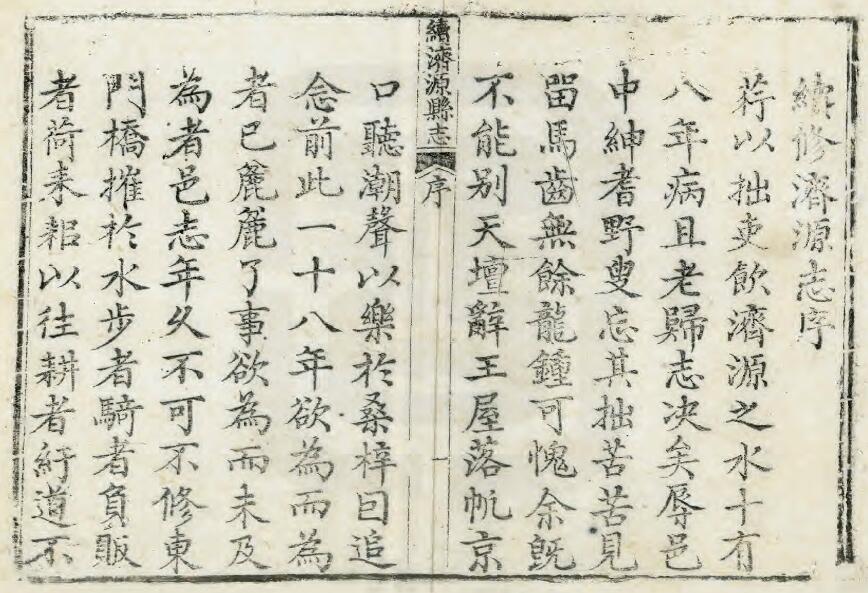 續修濟源志序
荇以拙吏飲濟源之水十有
八年病且老歸志决矣辱邑
中紳耆野叟忘其拙苦苦見
留馬齒無餘龍鍾可愧余旣
不能别天壇辭王屋落帆京
續濟源縣志
序
一
口聽潮聲以樂於桑梓囙追
念前此一十八年欲為而為
者已麄麄了事欲為而未及
為者邑志年久不可不修東
門橋摧於水步者騎者負販
者荷耒耜以往耕者紆道不